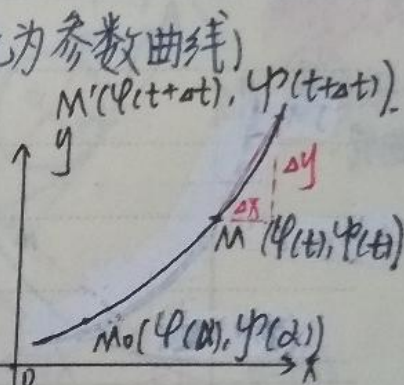 为参数曲线)
M'(φ(t+Δt), ψ(t+Δt)).
y
Δy
Δx
M (φ(t),ψ(t))
M₀(φ(α),ψ(α))
x